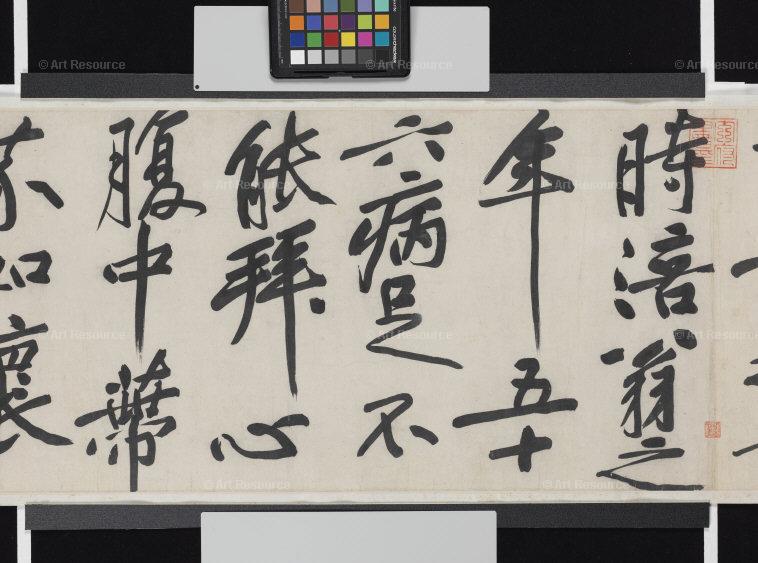 © Art Resource © Art Resource © Art Resource
時涪翁之
年五十
六病足不
能拜心
腹中蔕
芥如懷
© Art Resource © Art Resource
© Art Resource © Art Resource © Art Resource
© Art Resource © Art Resource